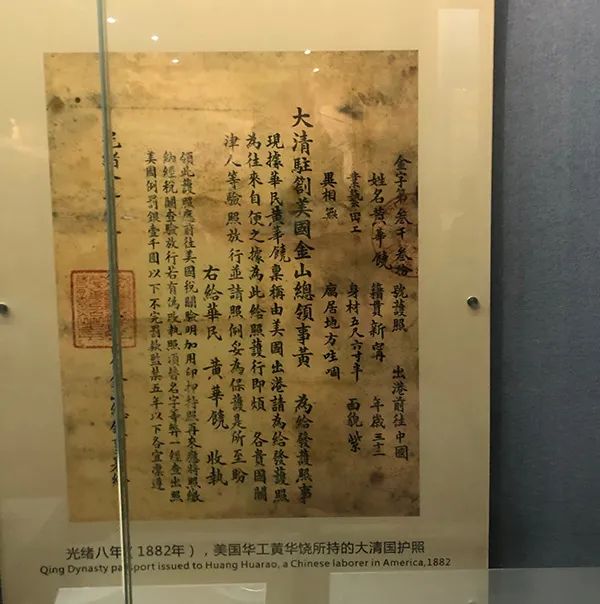 金字第叁千叁拾 號護照 出港前往中國
姓名黃華饒 籍貫新甯 年歲三十
業藝田工 身材五尺六寸半 面貌紫
異相無 寓居地方
大清駐劄美國金山總領事黃 為給發護照事
現據華民黃華饒稟稱由美國出港請為給發護照
為往來自便之據為此給照護行即煩 各貴國關
津人等驗照放行並請照例妥為保護是所至盼
右給華民 黃華饒 收執
領此護照應前往美國稅關驗明加用印押特照再來應將照繳
納經稅關查驗放行若有偽改執照須替名字等弊一經查出照
美國例罰銀壹千圓以下不完罰款監禁五年以下各宜凜遵
光緒
光绪八年（1882年），美国华工黄华饶所持的大清国护照
Qing Dynasty passport issued to Huang Huarao, a Chinese laborer in America,1882